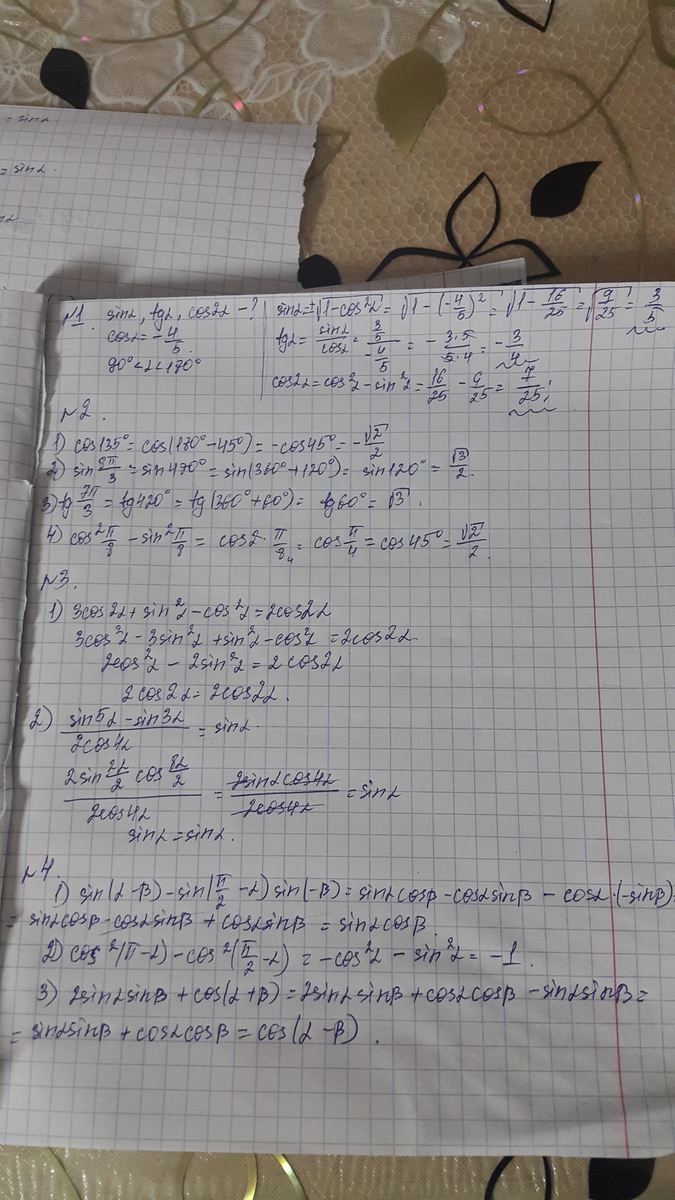 = sinα.
= sinα.
№1. sinα, tgα, cos2α - ?
cosα = -4/5
90° < α < 180°
sinα = ±√(1-cos²α) = √(1-(-4/5)²) = √(1-16/25) = √(9/25) = 3/5
tgα = sinα/cosα = (3/5)/(-4/5) = -(3·5)/(5·4) = -3/4
cos2α = cos²α - sin²α = 16/25 - 9/25 = 7/25;
№2.
1) cos135° = cos(180° - 45°) = -cos45° = -√2/2
2) sin 8π/3 = sin480° = sin(360° + 120°) = sin120° = √3/2.
3) tg 7π/3 = tg420° = tg(360° + 60°) = tg60° = √3.
4) cos² π/8 - sin² π/8 = cos2· π/8₄ = cos π/4 = cos45° = √2/2.
№3.
1) 3cos2α + sin²α - cos²α = 2cos2α
3cos²α - 3sin²α + sin²α - cos²α = 2cos2α.
2cos²α - 2sin²α = 2cos2α
2cos2α = 2cos2α.
2) (sin5α - sin3α)/(2cos4α) = sinα.
(2sin 2α/2 cos 8α/2)/(2cos4α) = (2sinαcos4α)/(2cos4α) = sinα
sinα = sinα.
№4.
1) sin(α - β) - sin(π/2 - α) sin(-β) = sinαcosβ - cosαsinβ - cosα·(-sinβ) =
= sinαcosβ - cosαsinβ + cosαsinβ = sinαcosβ.
2) cos²(π - α) - cos²(π/2 - α) = -cos²α - sin²α = -1.
3) 2sinαsinβ + cos(α + β) = 2sinαsinβ + cosαcosβ - sinαsinβ =
= sinαsinβ + cosαcosβ = cos(α - β).